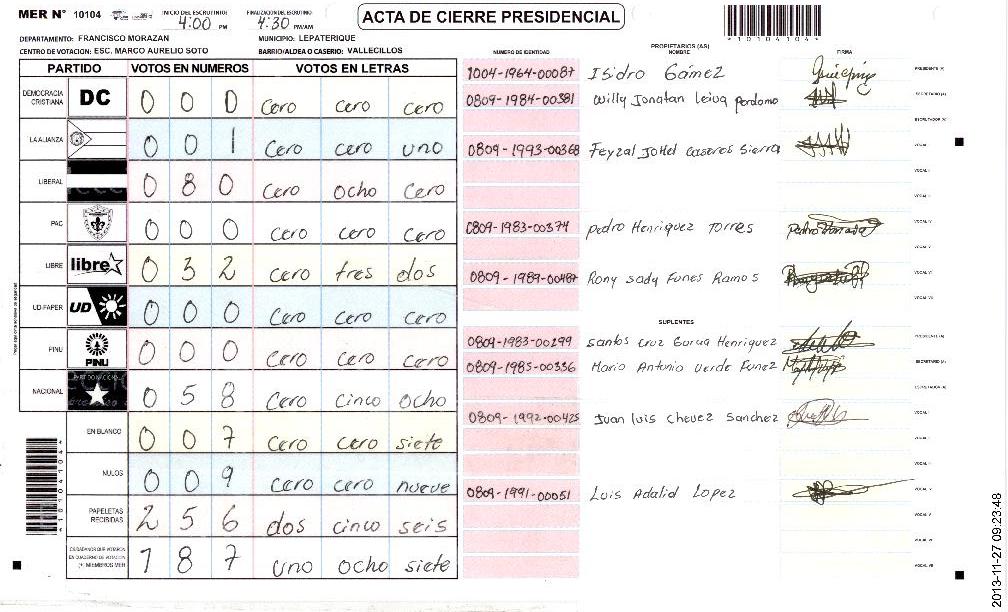 MER N° 10104 INICIO DEL ESCRUTINIO: 4:00 PM FINALIZACION DEL ESCRUTINIO: 4:30 PM/AM
ACTA DE CIERRE PRESIDENCIAL
*10104104*
DEPARTAMENTO: FRANCISCO MORAZAN MUNICIPIO: LEPATERIQUE
CENTRO DE VOTACION: ESC. MARCO AURELIO SOTO BARRIO/ALDEA O CASERIO: VALLECILLOS
PARTIDO VOTOS EN NUMEROS VOTOS EN LETRAS
DEMOCRACIA CRISTIANA DC 0 0 0 cero cero cero
LA ALIANZA 0 0 1 cero cero uno
LIBERAL 0 8 0 cero ocho cero
PAC 0 0 0 cero cero cero
LIBRE libre 0 3 2 cero tres dos
UD-FAPER UD 0 0 0 cero cero cero
PINU PINU 0 0 0 cero cero cero
NACIONAL PARTIDO NACIONAL 0 5 8 cero cinco ocho
EN BLANCO 0 0 7 cero cero siete
NULOS 0 0 9 cero cero nueve
PAPELETAS RECIBIDAS 2 5 6 dos cinco seis
CIUDADANOS QUE VOTARON EN CUADERNO DE VOTACION (+) MIEMBROS MER 1 8 7 uno ocho siete
*10104104*
PROPIETARIOS (AS)
NUMERO DE IDENTIDAD NOMBRE FIRMA
1004-1964-00087 Isidro Gámez PRESIDENTE (A)
0809-1984-00381 Willy Jonatan Leiva Perdomo SECRETARIO (A)
ESCRUTADOR (A)
0809-1993-00368 Feyzal Jottel Caseres Sierra VOCAL I
VOCAL II
VOCAL III
0809-1983-00374 Pedro Henriquez Torres VOCAL IV
VOCAL V
0809-1989-00487 Rony Sady Funes Ramos VOCAL VI
VOCAL VII
SUPLENTES
0809-1983-00299 Santos Cruz Garcia Henriquez PRESIDENTE (A)
0809-1985-00336 Mario Antonio Verde Funez SECRETARIO (A)
ESCRUTADOR (A)
0809-1992-00425 Juan Luis Chevez Sanchez VOCAL I
VOCAL II
VOCAL III
0809-1991-00051 Luis Adalid Lopez VOCAL IV
VOCAL V
VOCAL VI
VOCAL VII
2013-11-27 09:23:48